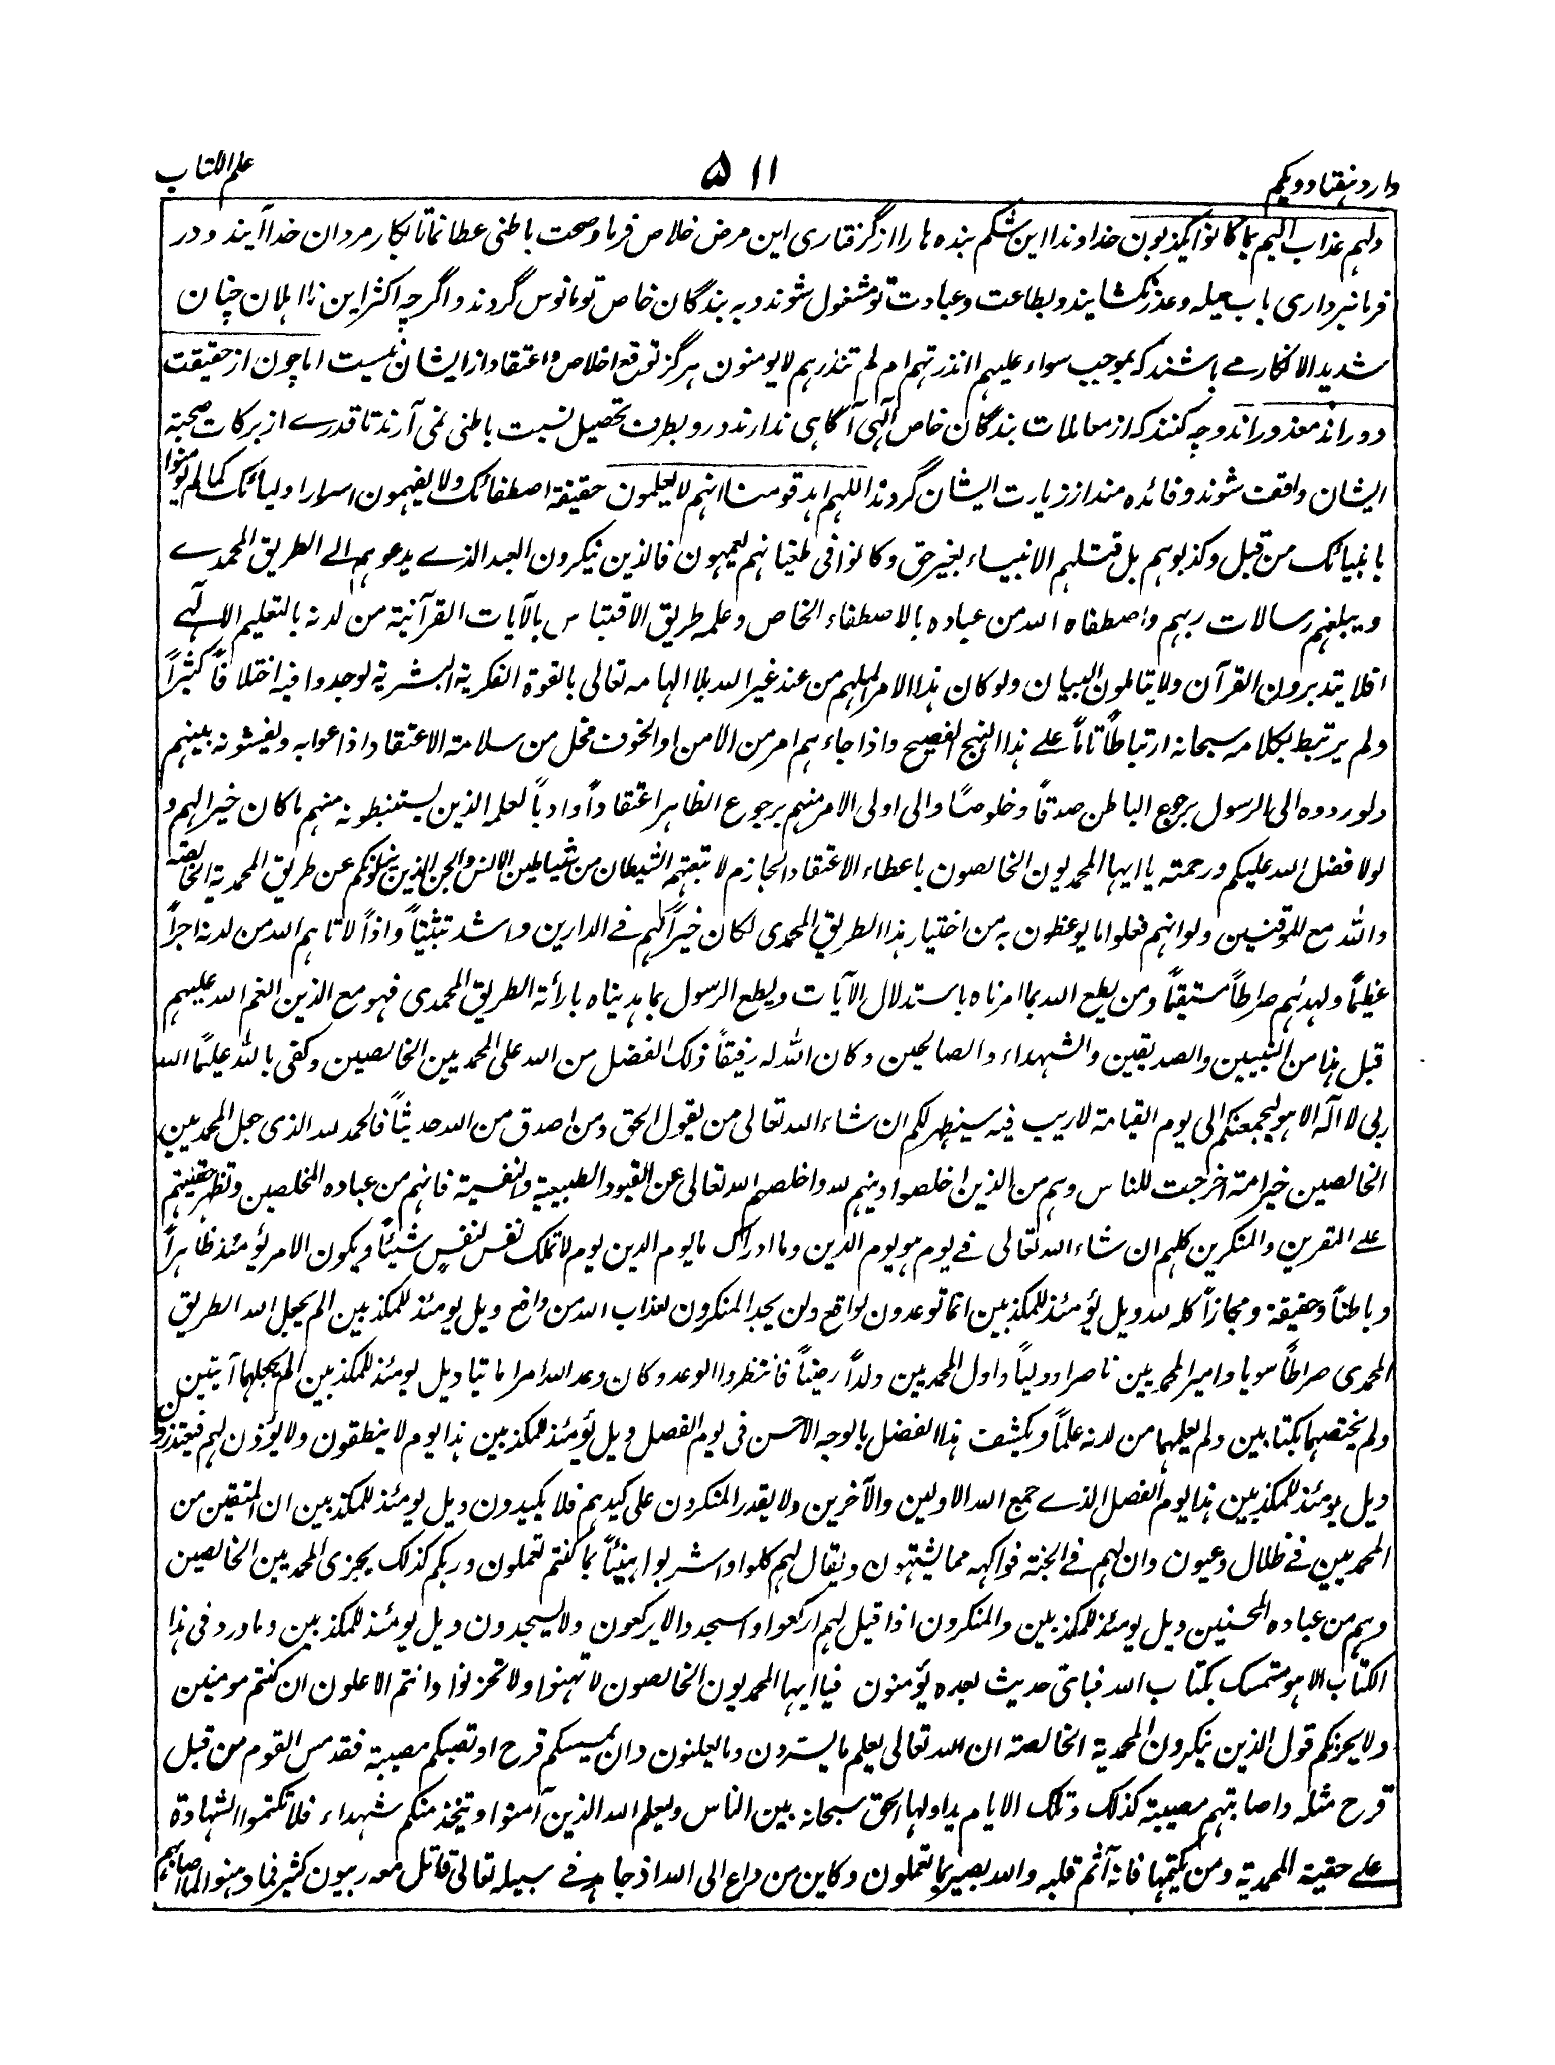 وارد ہفتاد و یکم
۵۱۱
علم الکتاب
ولہم عذاب الیم بما کانوا یکذبون خداوندا این شکم بندہ ہا را از گرفتاری این مرض خلاص فرما و صحت باطنی عطا نما تا بکار مردان خدا آیند و در
فرمانبرداری باب حیلہ و عذر نکشایند و بطاعت و عبادت تو مشغول شوند و بہ بندگان خاص تو مانوس گردند و اگرچہ اکثر این نااہلان چنان
شدید الانکار مے باشند کہ بموجب سواء علیہم اانذرتہم ام لم تنذرہم لا یومنون ہرگز توقع اخلاص و اعتقاد از ایشان نیست اما چون از حقیقت
دور اند معذور اند و چہ کنند کہ از معاملات بندگان خاص الٰہی آگاہی ندارند و رو بطرف تحصیل نسبت باطنی نمی آرند تا قدرے از برکات صحبتہ
ایشان واقف شوند و فائدہ مند از زیارت ایشان گردند اللہم اہد قومنا انہم لا یعلمون حقیقۃ اصطفائک ولا یفہمون اسرار اولیائک کما لم یومنوا
بانبیائک من قبل وکذبوہم بل قتلہم الانبیاء بغیر حق وکانوا فی طغیانہم یعمہون فالذین ینکرون العبد الذے یدعوہم الے الطریق المحمدے
ویبلغہم رسالات ربہم واصطفاہ اللہ من عبادہ بالاصطفاء الخاص وعلمہ طریق الاقتباس بالآیات القرآنیۃ من لدنہ بالتعلیم الالٰہے
افلا یتدبرون القرآن ولا یتاملون البیان ولو کان ہذا الامر الملہم من عند غیر اللہ بلا الہامہ تعالی بالقوۃ الفکریۃ البشریۃ لوجدوا فیہ اختلافاً کثیراً
ولم یرتبط بکلامہ سبحانہ ارتباطاً تاماً علے ہذا النہج الفصیح واذا جاءہم امر من الامن او الخوف مخل من سلامۃ الاعتقاد اذاعوا بہ ویفشونہ بینہم
ولو ردوہ الی الرسول برجوع الباطن صدقاً وخلوصاً والی اولی الامر منہم برجوع الظاہر اعتقاداً وادباً لعلمہ الذین یستنبطونہ منہم ما کان خیرا لہم و
لولا فضل اللہ علیکم ورحمتہ یا ایہا المحمدیون الخالصون باعطاء الاعتقاد الجازم لاتبعتم الشیطان من شیاطین الانس والجن الذین یضلونکم عن طریق المحمدیۃ الخالصۃ
واللہ مع الموقنین ولو انہم فعلوا ما یوعظون بہ من اختیار ہذا الطریق المحمدی لکان خیراً لہم فے الدارین واشد تثبیتاً واذاً لآتاہم اللہ من لدنہ اجراً
عظیماً ولہدٰہم صراطاً مستقیماً ومن یطع اللہ بما امرناہ باستدلال الآیات ویطع الرسول بما ہدیناہ باراۂ الطریق المحمدی فہو مع الذین انعم اللہ علیہم
قبل ہذا من النبیین والصدیقین والشہداء والصالحین وکان اللہ لہ رفیقاً ذلک الفضل من اللہ علی المحمدیین الخالصین وکفی باللہ علیماً اللہ
ربی لا الٰہ الا ہو لیجمعنکم الی یوم القیامۃ لا ریب فیہ سیظہر لکم ان شاء اللہ تعالی من یقول الحق ومن اصدق من اللہ حدیثاً فالحمد للہ الذی جعل المحمدیین
الخالصین خیر امۃ اخرجت للناس وہم من الذین اخلصوا دینہم للہ واخلصہم اللہ تعالی عن القیود الطبیعیۃ والنفسیۃ فانہم من عبادہ المخلصین وتظہر حقیتہم
علے المقرین والمنکرین کلہم ان شاء اللہ تعالی فے یوم ہو یوم الدین وما ادراک ما یوم الدین یوم لا تملک نفس لنفسٍ شیئاً ویکون الامر یومئذ ظاہراً
وباطناً وحقیقۃ ومجازاً کلہ للہ ویل یومئذ للمکذبین انما توعدون لواقع ولن یجد المنکرون لعذاب اللہ من دافع ویل یومئذ للمکذبین الم یجعل اللہ الطریق
المحمدی صراطاً سویا وامیر المحمدیین ناصرا وولیاً واول المحمدیین ولداً رضیاً فانتظروا الوعد وکان وعد اللہ امرا ماتیا ویل یومئذ للمکذبین الم یجعلہما آیتین
ولم یختصہما بکتابین ولم یعلمہما من لدنہ علماً ویکشف ہذا الفضل بالوجہ الاحسن فی یوم الفصل ویل یومئذ للمکذبین ہذا یوم لا ینطقون ولا یؤذن لہم فیعتذرون
ویل یومئذ للمکذبین ہذا یوم الفصل الذے جمع اللہ الاولین والآخرین ولا یقدر المنکرون علی کیدہم فلا یکیدون ویل یومئذ للمکذبین ان المتقین من
المحمدیین فے ظلال وعیون وان لہم فے الجنۃ فواکہہ مما یشتہون ویقال لہم کلوا واشربوا ہنیئاً بما کنتم تعملون وربکم کذلک یجزی المحمدیین الخالصین
وہم من عبادہ المحسنین ویل یومئذ للمکذبین والمنکرون اذا قیل لہم ارکعوا واسجدوا لا یرکعون ولا یسجدون ویل یومئذ للمکذبین وما ورد فی ہذا
الکتاب الا ہو متمسک بکتاب اللہ فبای حدیث بعدہ یؤمنون فیا ایہا المحمدیون الخالصون لا تہنوا ولا تحزنوا وانتم الاعلون ان کنتم مومنین
ولا یحزنکم قول الذین ینکرون المحمدیۃ الخالصۃ ان اللہ تعالی یعلم ما یسرون وما یعلنون وان یمسسکم قرح او تصبکم مصیبۃ فقد مس القوم من قبل
قرح مثلہ واصابتہم مصیبۃ کذلک وتلک الایام یداولہا الحق سبحانہ بین الناس ولیعلم اللہ الذین آمنوا ویتخذ منکم شہداء فلا تکتموا الشہادۃ
علے حقیۃ المحمدیۃ ومن یکتمہا فانہ آثم قلبہ واللہ بصیر بما تعملون وکاین من داع الی اللہ اذ جاہد فے سبیلہ تعالی قاتل معہ ربیون کثیر فما وہنوا لما اصابہم